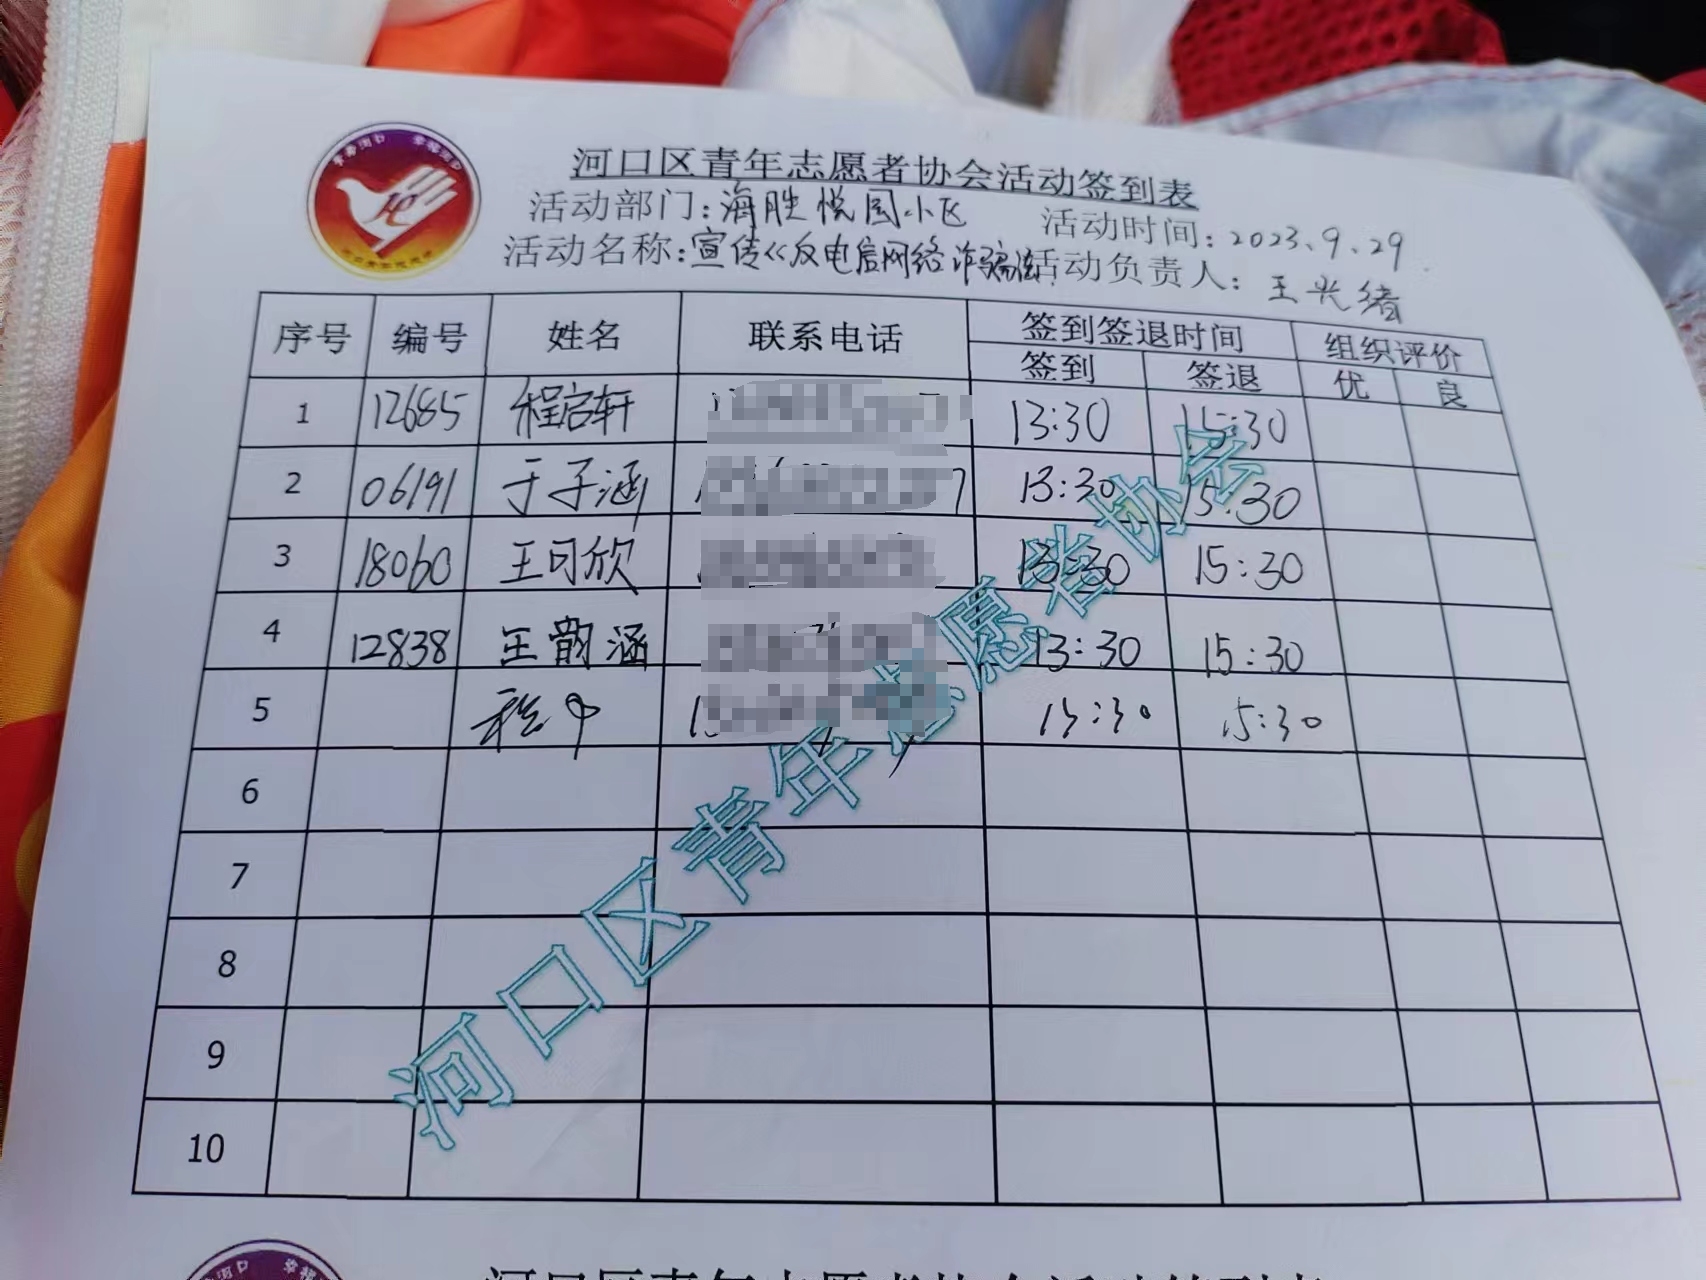 河口区青年志愿者协会活动签到表
活动部门:海胜悦园小区 活动时间:2023.9.29
活动名称:宣传《反电信网络诈骗法》 活动负责人:王光绪
序号 编号 姓名 联系电话 签到签退时间 组织评价
签到 签退 优 良
1 12685 程启轩 13:30 15:30
2 06191 于子涵 13:30 15:30
3 18060 王可欣 13:30 15:30
4 12838 王韵涵 13:30 15:30
5 13:30 15:30
6
7
8
9
10
河口区青年志愿者协会
河口区青年志愿者协会活动签到表